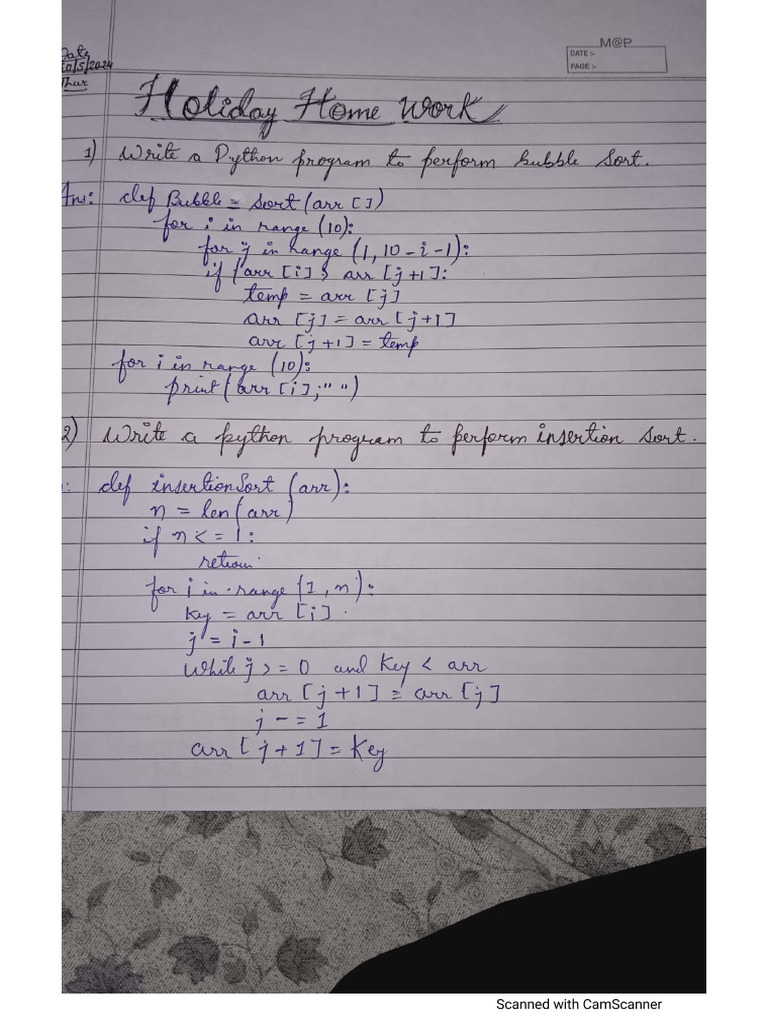 M@P
DATE :-
PAGE :-
Date
/5/2024
Thur
Holiday Home Work
1) Write a Python program to perform bubble sort.
Ans: def Bubble = sort (arr [])
for i in range (10):
for j in range (1, 10 - i - 1):
if (arr [i] > arr [j+1]:
temp = arr [j]
arr [j] = arr [j+1]
arr [j+1] = temp
for i in range (10):
print (arr [i]; " ")
2) Write a python program to perform insertion sort.
: def insertionSort (arr):
n = len (arr)
if n < = 1:
return
for i in range (1, n):
Key = arr [i]
j = i - 1
While j > = 0 and Key < arr
arr [j + 1] = arr [j]
j - = 1
arr [j + 1] = Key
Scanned with CamScanner